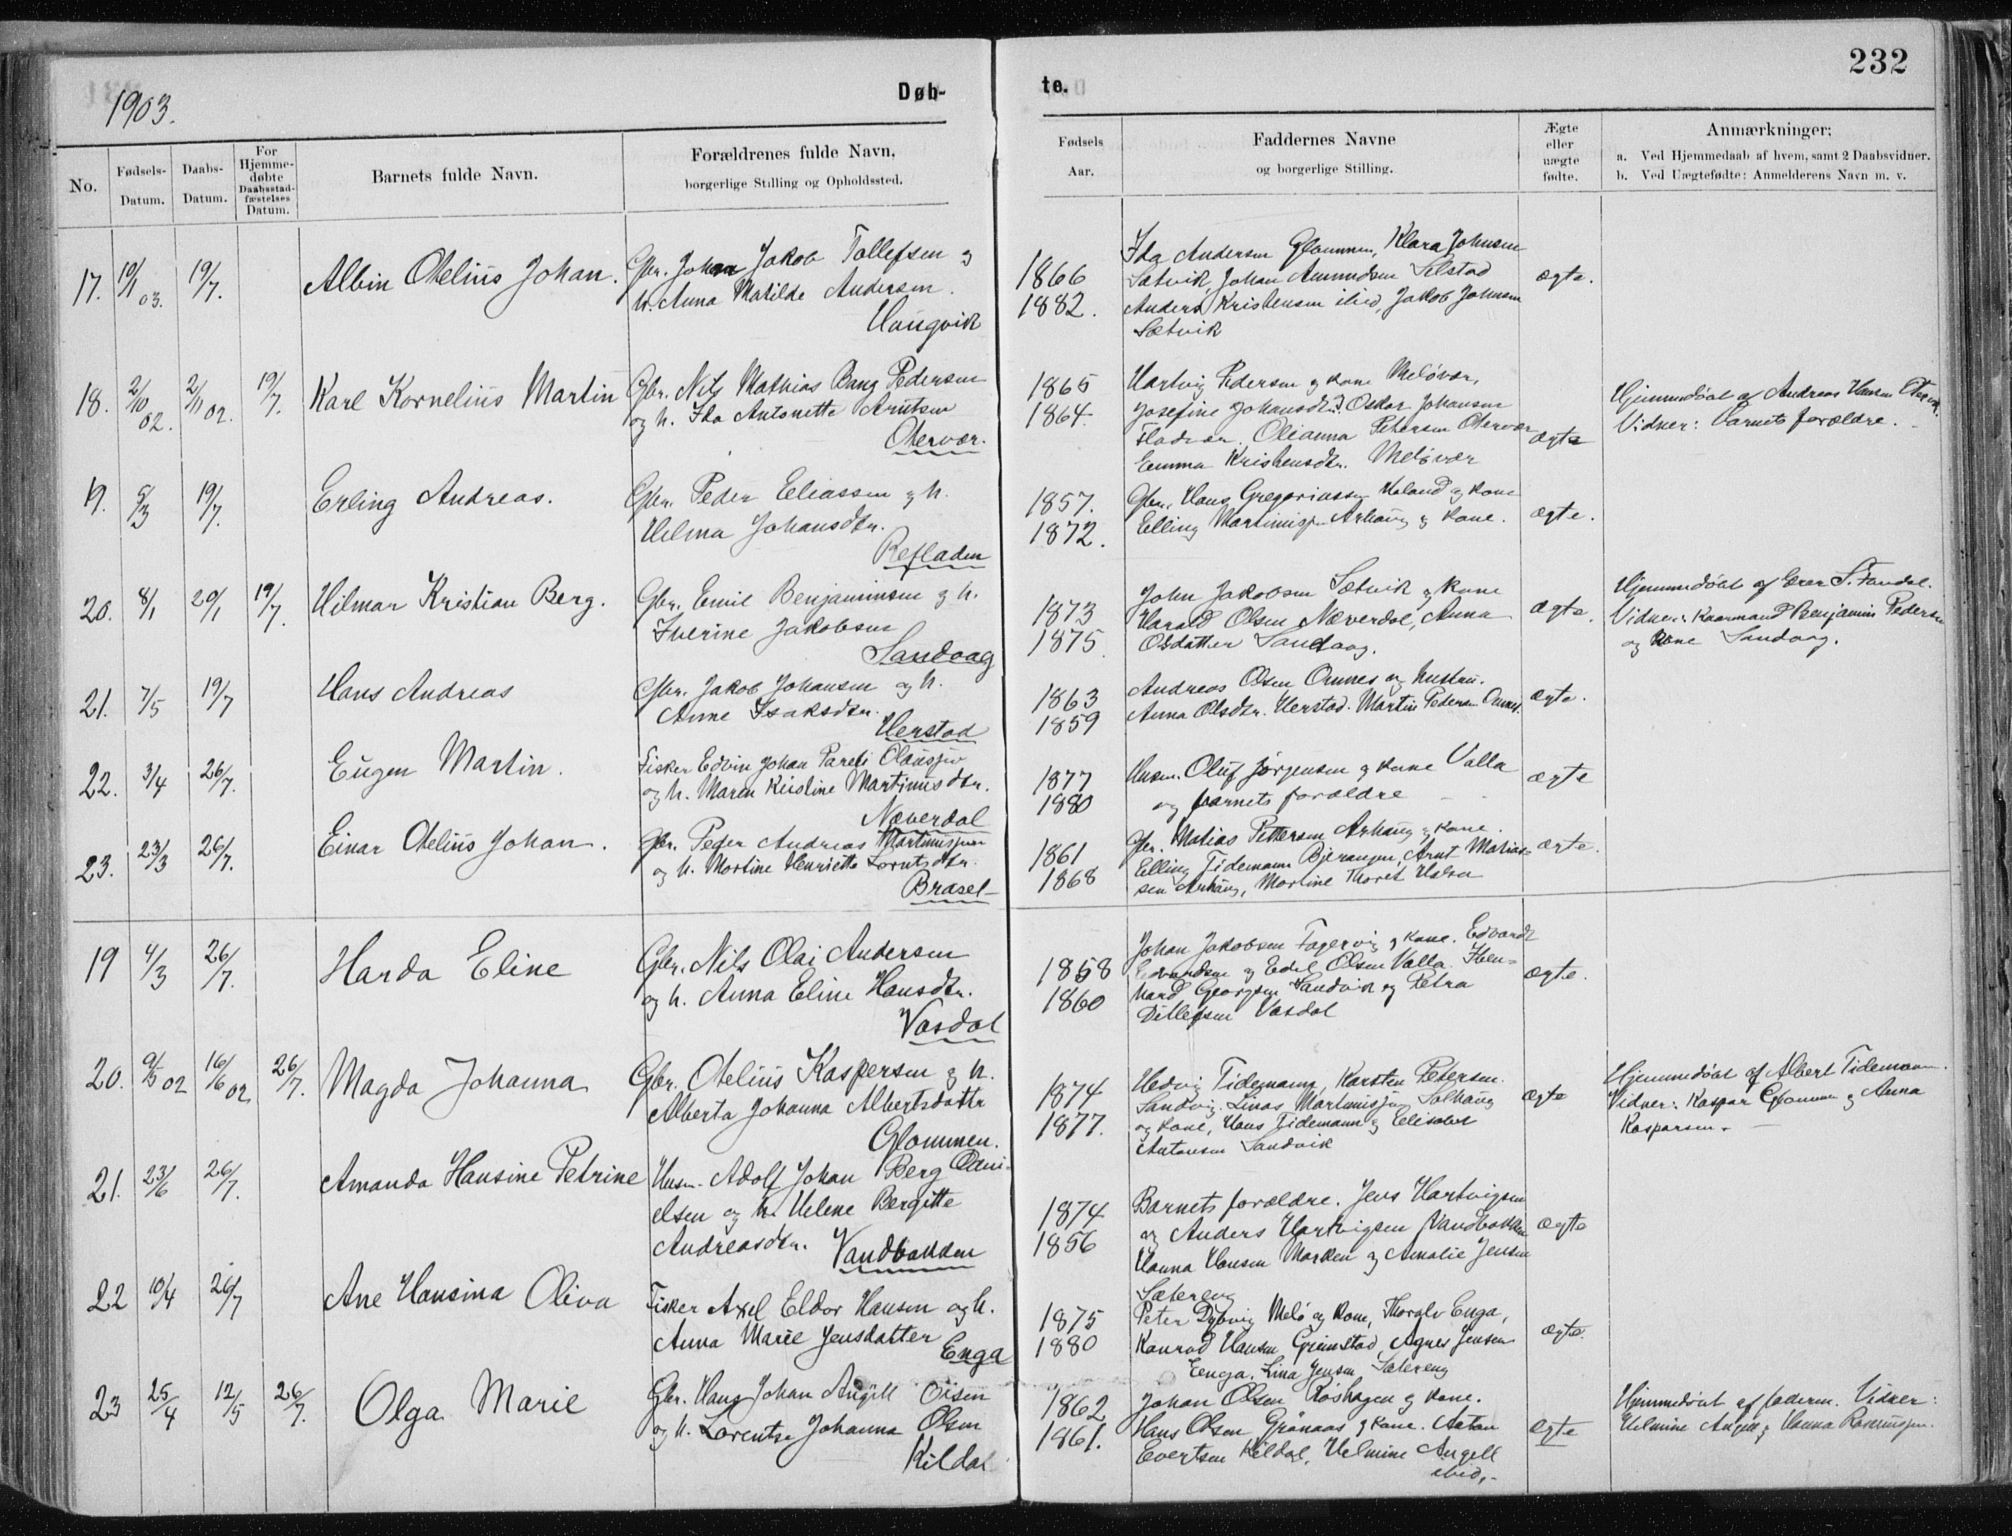 232
1903.
Døb-
te.
No.
Fødsels-
Datum.
Daabs-
Datum.
For
Hjemme-
døbte
Daabsstad-
fæstelses
Datum.
Barnets fulde Navn.
Forældrenes fulde Navn,
borgerlige Stilling og Opholdssted.
Fødsels
Aar.
Faddernes Navne
og borgerlige Stilling.
Ægte
eller
uægte
fødte.
Anmærkninger;
a. Ved Hjemmedaab af hvem, samt 2 Daabsvidner.
b. Ved Uægtefødte: Anmelderens Navn m. v.
17. 10/1 03. 19/7. Albin Otelius Johan.
Gbr. Johan Jakob Tollefsen og
h. Anna Matilde Andersen.
Haugvik
1866
1882.
Ida Andersen Glommen, Klara Johnsen
Sætvik, Johan Amundsen Selstad
Anders Kristensen ibid, Jakob Johnsen
Sætvik
ægte.
18. 2/10 02. 2/11 02. 19/7. Karl Kornelius Martin
Gbr. Nils Mathias Bang Pedersen
og h. Ida Antonette Arntsen
Otervær.
1865
1864.
Hartvig Pedersen og Kone Meløvær,
Josefine Johansdtr. Oskar Johansen
Flatvær. Olianna Petersen Otervær
Emma Kristensdtr. Meløvær
ægte
Hjemmedøbt af Andreas Hansen
Vidner: Barnets forældre.
19. 5/3 19/7. Erling Andreas.
Gbr. Peder Eliassen og h.
Helma Johansdtr.
Refladen
1857.
1872.
Gbr. Hans Gregoriussen Haland og Kone
Elling Martinusen Arhaug og Kone.
ægte.
20. 8/1 20/1 19/7. Hilmar Kristian Berg.
Gbr. Emil Benjaminsen og h.
Iverine Jakobsen
Sandvag
1873
1875.
John Jakobsen Sætvik og Kone
Harald Olsen Næverdal, Anna
Olsdatter Sandvag.
ægte.
Hjemmedøbt af Lærer S. Fondal.
Vidner: Kaarmand Benjamin Pedersen
og Kone Sandvag.
21. 7/5 19/7 Hans Andreas
Gbr. Jakob Johansen og h.
Anne Isaksdtr.
Herstad
1863
1859
Andreas Olsen Onnes og hustru.
Anna Olsdtr. Herstad. Martin Pedersen Onnes.
ægte.
22. 3/4 26/7. Eugen Martin.
Fisker Edvin Johan Pareli Olausen
og h. Maren Kristine Martinusdtr.
Næverdal
1877
1880
Husm. Oluf Jørgensen og Kone Valla
og barnets forældre
ægte
23. 23/3 26/7. Einar Otelius Johan.
Gbr. Peder Andreas Martinusen
og h. Martine Henriette Lorntsdtr.
Brasel
1861
1868
Gbr. Matias Pettersen Arhaug og Kone.
Elling Tidemann Bjerangen, Arnt Matias-
sen Arhaug, Martine Thoret Halsa
ægte.
19 4/3 26/7. Harda Eline
Gbr. Nils Olai Andersen
og h. Anna Eline Hansdtr.
Vasdal
1858
1860
Johan Jakobsen Fagervig og Kone. Edvard
Edvardsen og Edel Olsen Valla.
Georgsen Sandvik og Petra
Ditlefsen Vasdal
ægte.
20. 9/5 02 16/6 02 26/7. Magda Johanna
Gbr. Otelius Kaspersen og h.
Alberta Johanna Albertsdatter
Glommen.
1874
1877.
Hedvig Tidemann, Karsten Petersen
Sandvig. Linas Martinusen Solhaug
og Kone, Hans Tidemann og Elisabet
Antonsen Sandvik
ægte
Hjemmedøbt af Albert Tidemann.
Vidner: Kaspar Glommen og Anna
Kaspersen.
21. 23/6 26/7. Amanda Hansine Petrine
Husm. Adolf Johan Berg Dani-
elsen og h. Helene Bergitte
Andreasdtr. Vandbakken
1874
1856
Barnets forældre. Jens Hartvigsen
og Anders Hartvigsen Vandbakken
Hanna Hansen Marken og Amalie Jensen
Sætereng
ægte
22 10/4 26/7 Ane Hansina Oliva
Fisker Axel Eldor Hansen og h.
Anna Marie Jensdatter
Enga
1875
1880
Peter Dybvig Melø og Kone, Thoralv Enga,
Konrad Hansen Grimstad, Agnes Jensen
Enga. Lina Jensen Sætereng
ægte.
23 25/4 12/5 26/7. Olga Marie
Gbr. Hans Johan Angell Olsen
og h. Lorentse Johanna Olsen
Kildal
1862
1861.
Johan Olsen Røshagen og Kone.
Hans Olsen Grønaas og Kone. Anton
Evertsen Kildal, Helmine Angell
ibid.
ægte
Hjemmedøbt af faderen. Vidner:
Helmine Angell og Hanna Rasmussen.